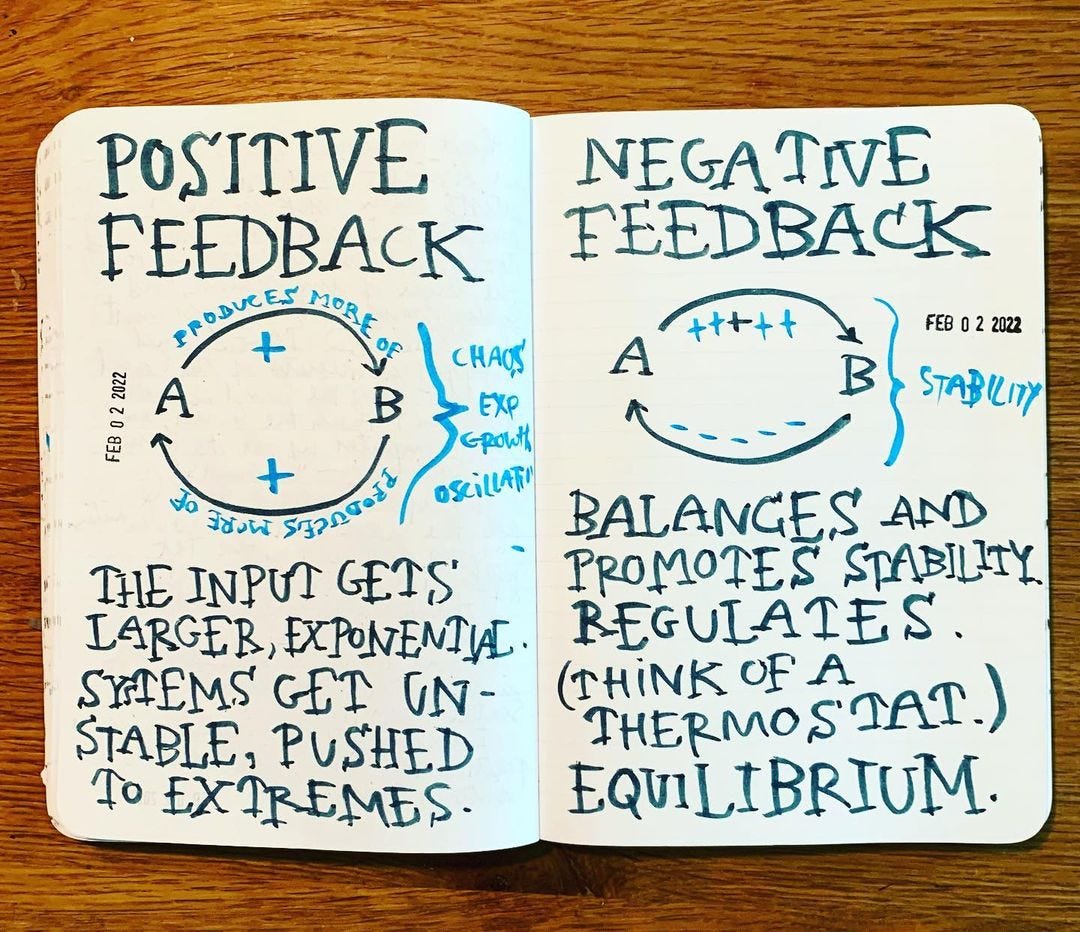 POSITIVE
FEEDBACK
PRODUCES MORE OF
+
A
B
+
PRODUCES MORE OF
FEB 02 2022
CHAOS
EXP
GROWTH
OSCILLATI
THE INPUT GETS
LARGER, EXPONENTIAL.
SYSTEMS GET UN-
STABLE, PUSHED
TO EXTREMES.
NEGATIVE
FEEDBACK
+++++
A
B
- - - - - -
FEB 02 2022
STABILITY
BALANCES AND
PROMOTES STABILITY.
REGULATES.
(THINK OF A
THERMOSTAT.)
EQUILIBRIUM.